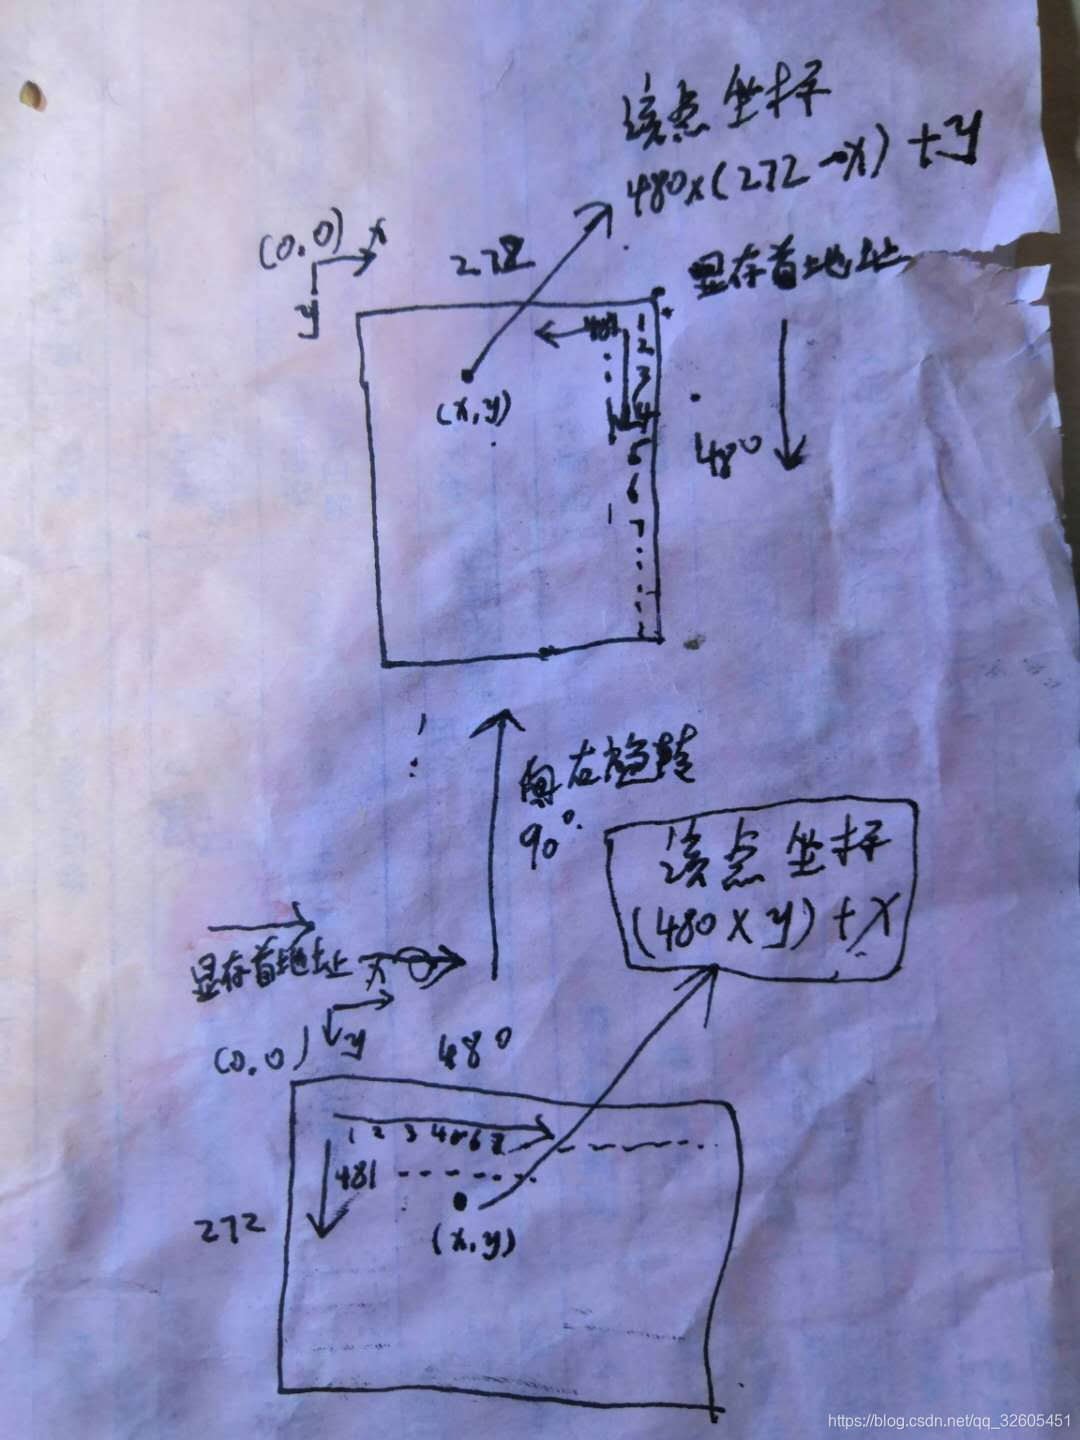 该点坐标
480x(272-x)+y
(0,0) x
y
272
显存首地址
481
1
2
3
4
5
6
7
(x,y)
480
向右旋转
90°
该点坐标
(480xy)+x
显存首地址 x
(0,0) y
480
1 2 3 4 5 6 7
481
272
(x,y)
https://blog.csdn.net/qq_32605451